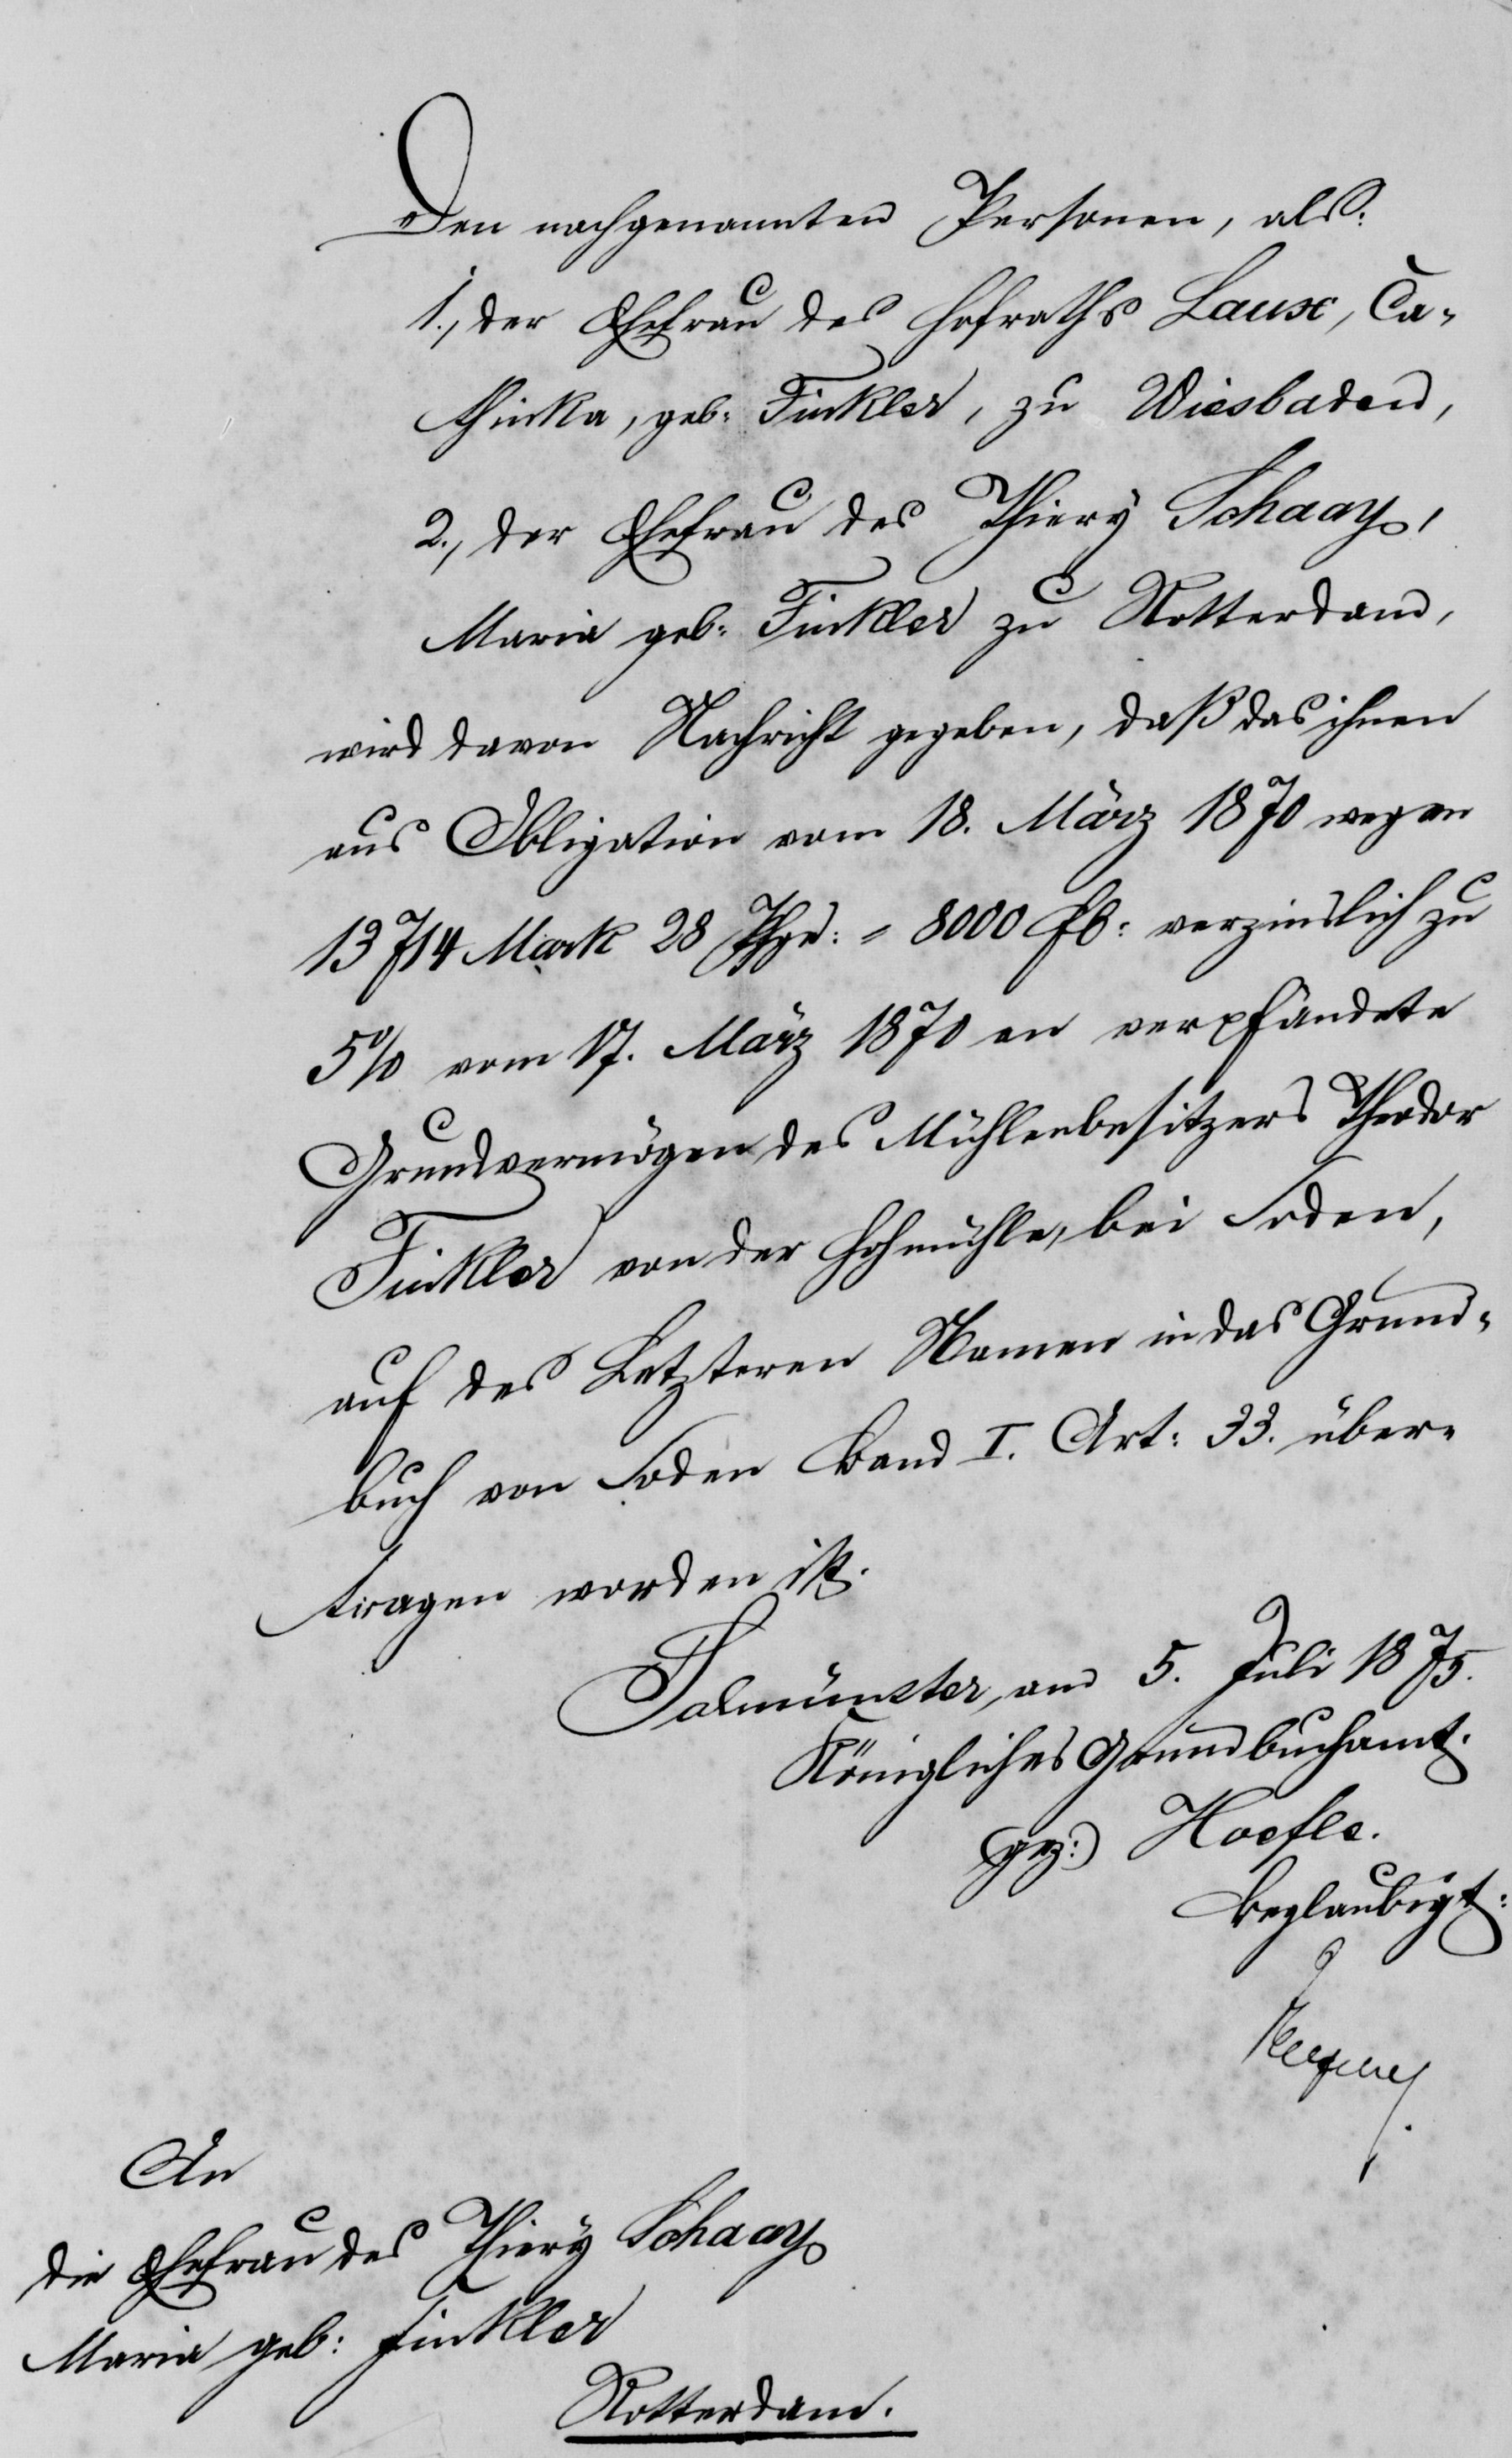 Den nachgenannten Personen, als:
1., der Ehefrau des Hofraths Laux, Ca-
thinka, geb: Finkler, zu Wiesbaden,
2., der Ehefrau des Thiery Schaay,
Maria geb: Finkler zu Rotterdam,
wird davon Nachricht gegeben, daß das ihnen
aus Obligation vom 18. März 1870 wegen
13714 Mark 28 Pfge: = 8000 fl: verzinslich zu
5% vom 17. März 1870 an verpfändete
Grundvermögen des Mühlenbesitzers Theodor
Finkler von der Hohmühle, bei Soden,
auf des Letzteren Namen in das Grund-
buch von Soden Band I. Art: 33. über-
tragen worden ist.
Salmünster, am 5. Juli 1875.
Königliches Grundbuchamt.
(gez:) Hoefle.
Beglaubigt:
An
die Ehefrau des Thiery Schaay
Maria geb: Finkler
Rotterdam.